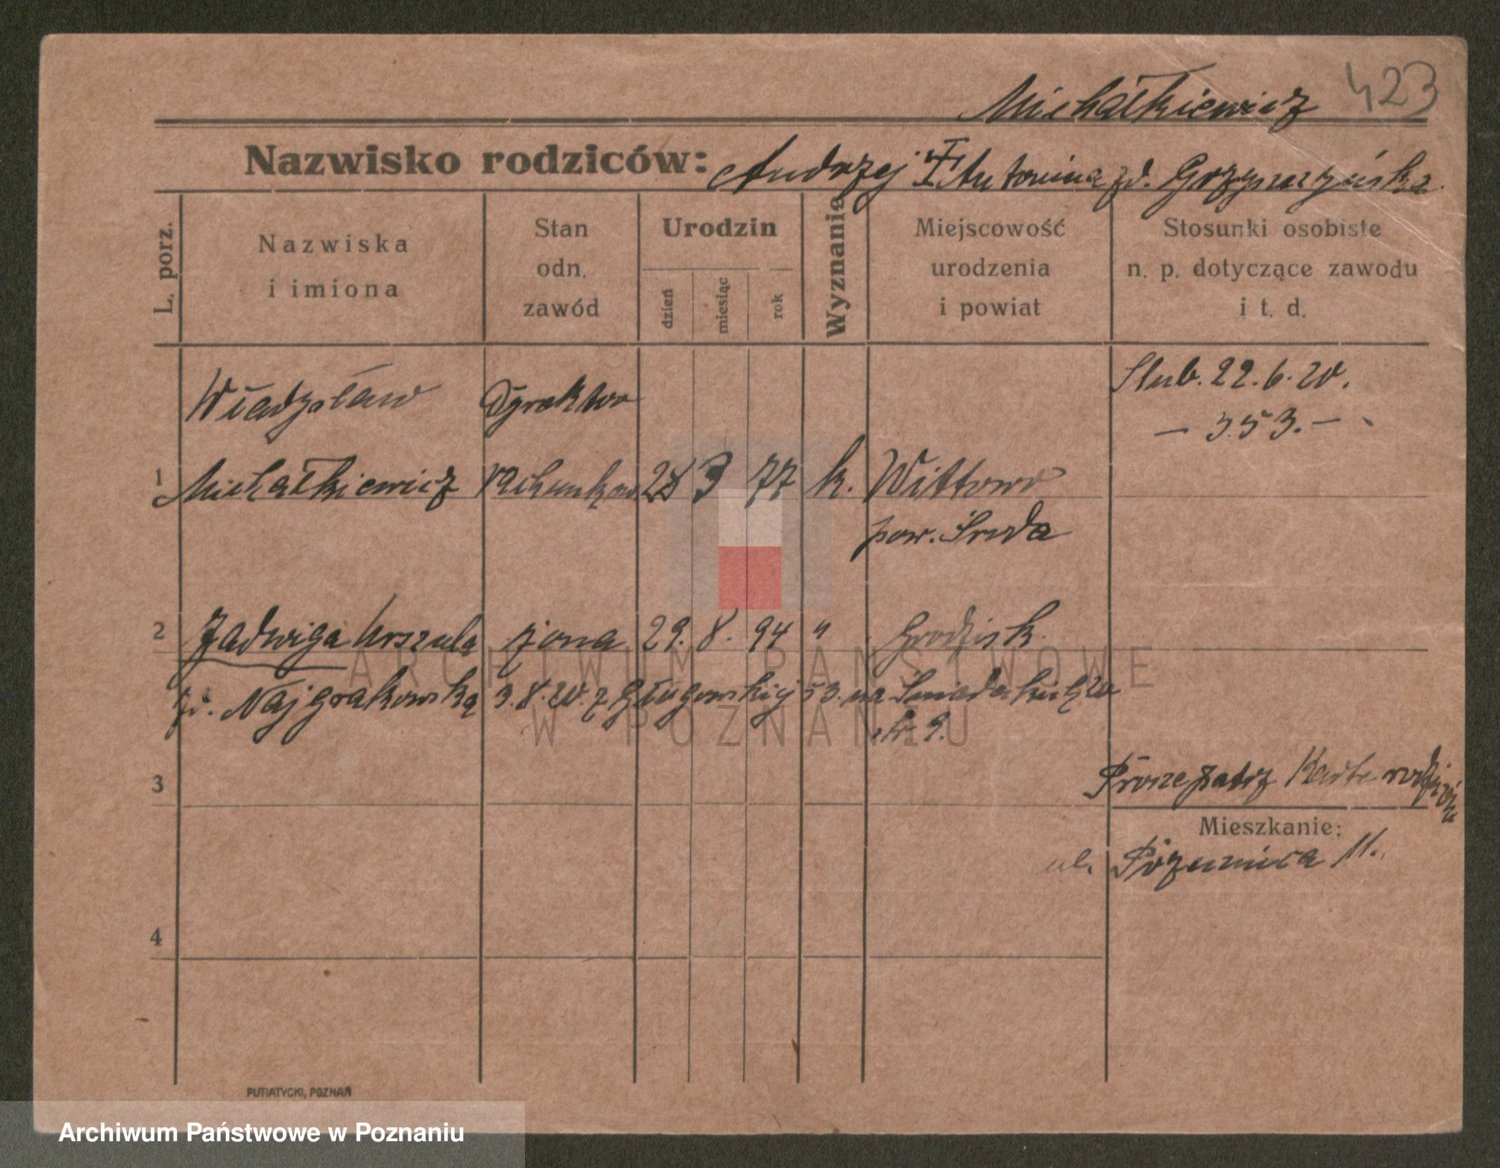 423
Michałkiewicz
Nazwisko rodziców: Andrzej Antonina zd. Grzyszczyńska
L. porz.
Nazwiska
i imiona
Stan
odn.
zawód
Urodzin
dzień
miesiąc
rok
Wyznanie
Miejscowość
urodzenia
i powiat
Stosunki osobiste
n. p. dotyczące zawodu
i t. d.
Władysław Dyrektor Ślub. 22.6.20.
— 353. —
1 Michałkiewicz 3 77 k. Wittowo
pow. Środa
2 Jadwiga Urszula żona 29. 8. 94 " Grodzisk.
zd. Najgrakowska 3.8.20. z Głogowskiej 53. na
9.
3
Karte rodziców
Mieszkanie:
ul. 11.
4
PUTIATYCKI, POZNAŃ
ARCHIWUM PAŃSTWOWE
W POZNANIU
Archiwum Państwowe w Poznaniu